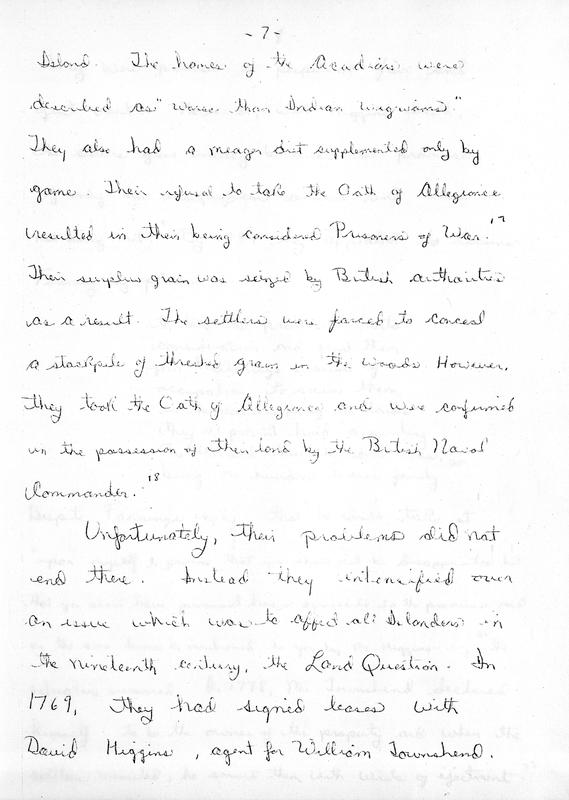 - 7 -
Island. The homes of the Acadians were
described as "worse than Indian wigwams."
They also had a meager diet supplemented only by
game. Their refusal to take the Oath of Allegiance
resulted in their being considered Prisoners of War. 17
Their surplus grain was seized by British authorities
as a result. The settlers were forced to conceal
a stockpile of threshed grain in the woods. However,
they took the Oath of Allegiance and were confirmed
in the possession of their land by the British Naval
Commander. 18
Unfortunately, their problems did not
end there. Instead they intensified over
an issue which was to affect all Islanders in
the nineteenth century, the Land Question. In
1769, they had signed leases with
David Higgins, agent for William Townshend.